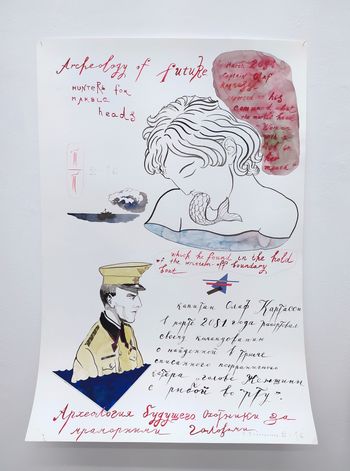 Archeology of future
HUNTERS for
MARBLE
heads
March 2081
Captain Olaf
reported to his
command about
the marble head
Woman
with
in her
which he found in the hold
of the written-off boundary
boat
капитан Олаф Картасон
в марте 2081 года рапортовал
своему командованию
о найденной в трюме
списанного пограничного
катера голове Женщины
с рыбой во "рту".
Археология будущего Охотники за
мраморными головами